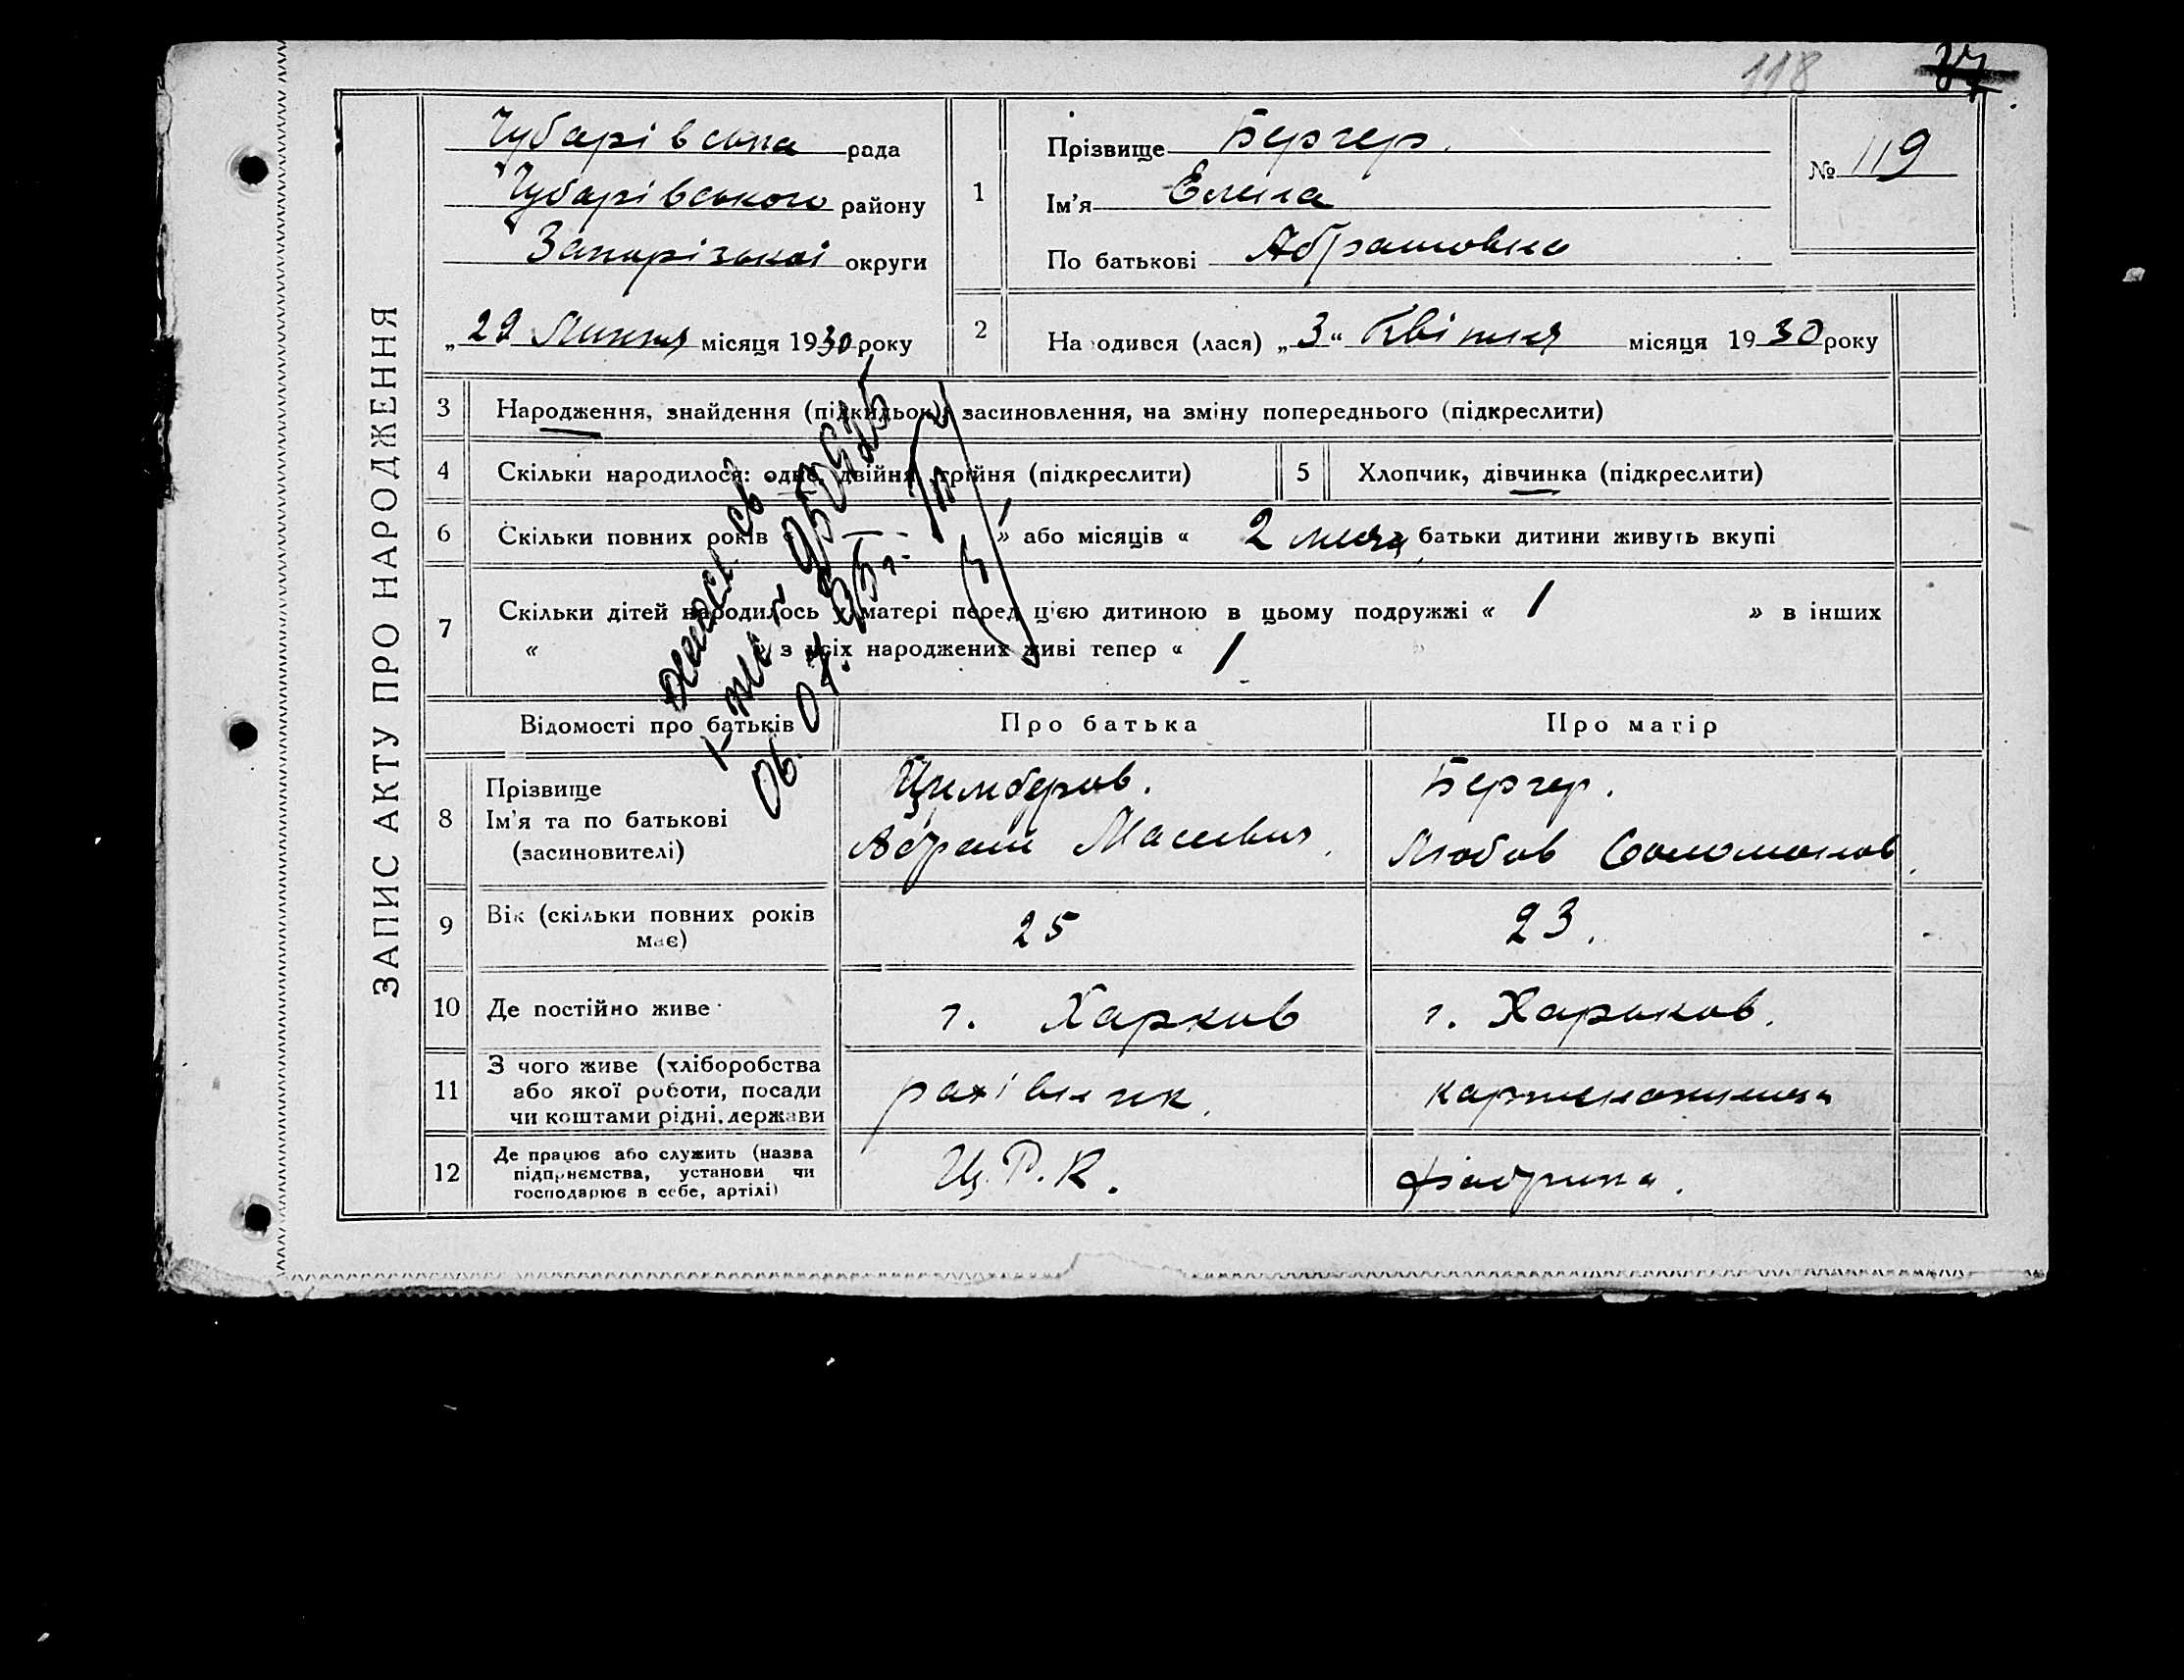 118
37
ЗАПИС АКТУ ПРО НАРОДЖЕННЯ
Чубарівська рада
Чубарівського району
Запорізької округи
„ 29 Липня місяця 1930 року
1
Прізвище Бергер.
Ім'я Елена
По батькові Абрамовна
№ 119
2
Народився (лася) „ 3 “ Квітня місяця 1930 року
3 Народження, знайдення (підкидьок), засиновлення, на зміну попереднього (підкреслити)
4 Скільки народилося: одно, двійня, трійня (підкреслити)
5 Хлопчик, дівчинка (підкреслити)
6 Скільки повних років « — » або місяців « 2 батьки дитини живуть вкупі
7 Скільки дітей народилось у матері перед цією дитиною в цьому подружжі « 1 » в інших
« » з усіх народжених живі тепер « 1
Відомості про батьків
Про батька
Про матір
8 Прізвище
Ім'я та по батькові
(засиновителі)
Цимберов.
Абрам
Бергер.
Любов Соломонов
9 Вік (скільки повних років
має)
25
23.
10 Де постійно живе
г. Харков
г. Харьков.
11 З чого живе (хліборобства
або якої роботи, посади
чи коштами рідні, держави
рахівник.
12 Де працює або служить (назва
підприємства, установи чи
господарює в себе, артілі)
Ц.Р.К.
фабрика.